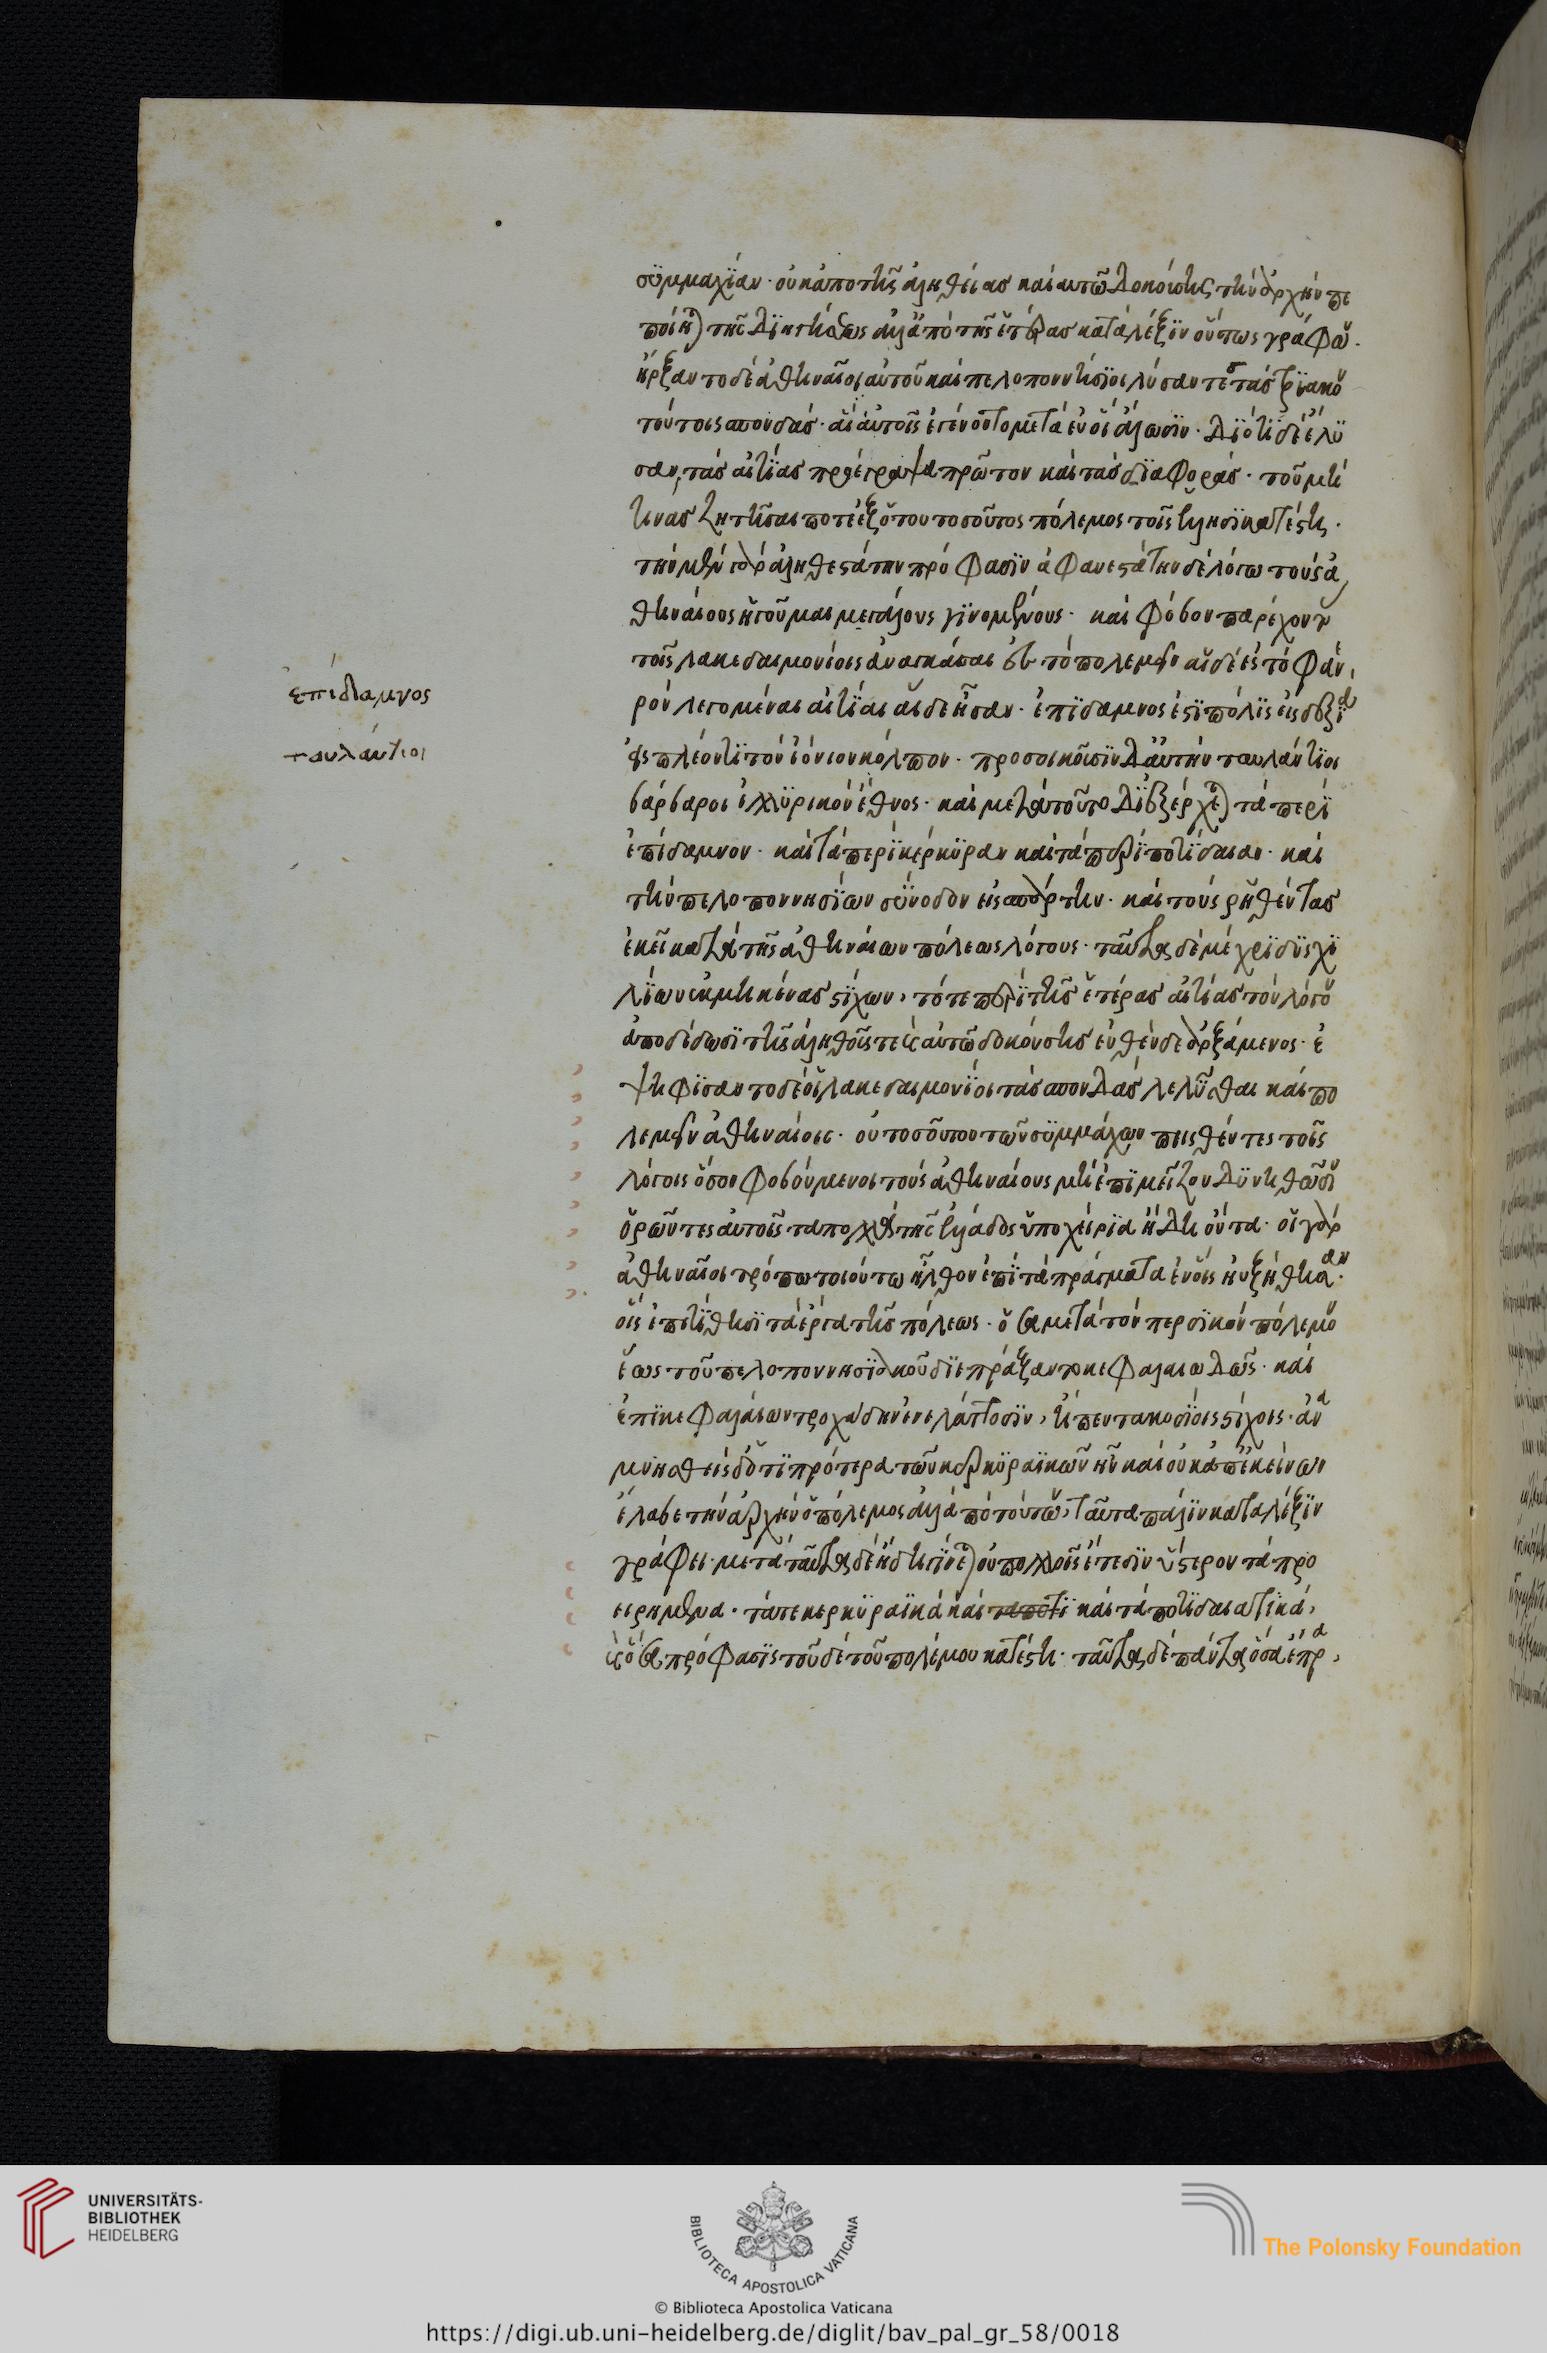 συμμαχίαν· οὐκ ἀπὸ τῆς ἀληθείας καὶ αὐτῶ δοκούσης τὴν ἀρχὴν πε
ποίηται τῆς διηγήσεως ἀλλ' ἀπὸ τῆς ἑτέρας κατὰ λέξιν οὕτως γράφων·
ἤρξαντο δὲ ἀθηναῖοι αὐτοῦ καὶ πελοποννήσιοι λύσαντες τὰς τριακον
τούτεις σπονδάς· αἳ αὐτοῖς ἐγένοντο μετὰ εὐοίας ἅλωσιν· διότι δὲ ἔλυ
σαν, τὰς αἰτίας προέγραψα πρῶτον καὶ τὰς διαφοράς· τοῦ μή
τινας ζητῆσαι ποτὲ ἐξ ὅτου τοσοῦτος πόλεμος τοῖς ἕλλησι κατέστη·
τὴν μὲν γὰρ ἀληθεστάτην πρόφασιν ἀφανεστάτην δὲ λόγω τοὺς ἀ
θηναίους ἡγοῦμαι μεγάλους γινομένους· καὶ φόβον παρέχοντας
τοῖς λακεδαιμονίοις ἀναγκάσαι ἐς τὸ πολεμεῖν αἱ δὲ ἐς τὸ φανε
ρὸν λεγομέναι αἰτίαι αἵδε ἦσαν· ἐπίδαμνος ἐστὶ πόλις ἐν δεξιᾶ
ἐσπλέοντι τὸν ἰόνιον κόλπον· προσοικοῦσιν δ' αὐτὴν ταυλάντιοι
βάρβαροι ἰλλυρικὸν ἔθνος· καὶ μετὰ τοῦτο διεξέρχεται τὰ περὶ
ἐπίδαμνον· καὶ τὰ περὶ κέρκυραν καὶ τὰ περὶ ποτίδαιαν· καὶ
τὴν πελοποννησίων σύνοδον εἰς σπάρτην· καὶ τοὺς ῥηθέντας
ἐκεῖ κατὰ τῆς ἀθηναίων πόλεως λόγους· ταῦτα δὲ μέχρι δισχι
λίων ἐκμηκύνας στίχων, τότε περὶ τῆς ἑτέρας αἰτίας τὸν λόγον
ἀποδίδωσι τῆς ἀληθοῦς τε καὶ αὐτῶ δοκούσης ἐνθένδε ἀρξάμενος· ἐ
ψηφίσαντο δὲ οἱ λακεδαιμονίοι τὰς σπονδὰς λελῦσθαι καὶ πο
λεμεῖν ἀθηναίοις· οὐ τοσοῦτον τῶν συμμάχων πεισθέντες τοῖς
λόγοις ὅσον φοβούμενοι τοὺς ἀθηναίους μὴ ἐπὶ μεῖζον δυνηθῶσιν
ὁρῶντες αὐτοῖς τὰ πολλὰ τῆς ἑλλάδος ὑποχείρια ἤδη ὄντα· οἱ γὰρ
ἀθηναῖοι τρόπω τοιούτω ἦλθον ἐπὶ τὰ πράγματα ἐν οἷς ηὐξήθησαν·
οἷς ἐπιτίθησι τὰ ἔργα τῆς πόλεως· ὅσα μετὰ τὸν περσικὸν πόλεμον
ἕως τοῦ πελοποννησιακοῦ διεπράξαντο κεφαλαιωδῶς· καὶ
ἐπὶ κεφαλαίων τροχάδην ἐν ἐλάττοσιν, ἢ πεντακοσίοις στίχοις· ἀνα
μνησθεὶς δ' ὅτι πρότερα τῶν κερκυραϊκῶν ἦν καὶ οὐκ ἀπ' ἐκείνων
ἔλαβε τὴν ἀρχὴν ὁ πόλεμος ἀλλ' ἀπὸ τούτων, ταῦτα πάλιν κατὰ λέξιν
γράφει· μετὰ ταῦτα δὲ ἤδη γίνεται οὐ πολλοῖς ἔτεσιν ὕστερον τὰ προ
ειρημένα· τά τε κερκυραϊκὰ καὶ τὰ ποτι καὶ τὰ ποτιδαιατικά,
καὶ ὅσα πρόφασις τοῦδε τοῦ πολέμου κατέστη· ταῦτα δὲ πάντα ὅσα ἔπρα
ἐπίδαμνος
ταυλάντιοι
UNIVERSITÄTS-
BIBLIOTHEK
HEIDELBERG
BIBLIOTECA APOSTOLICA VATICANA
The Polonsky Foundation
© Biblioteca Apostolica Vaticana
https://digi.ub.uni-heidelberg.de/diglit/bav_pal_gr_58/0018